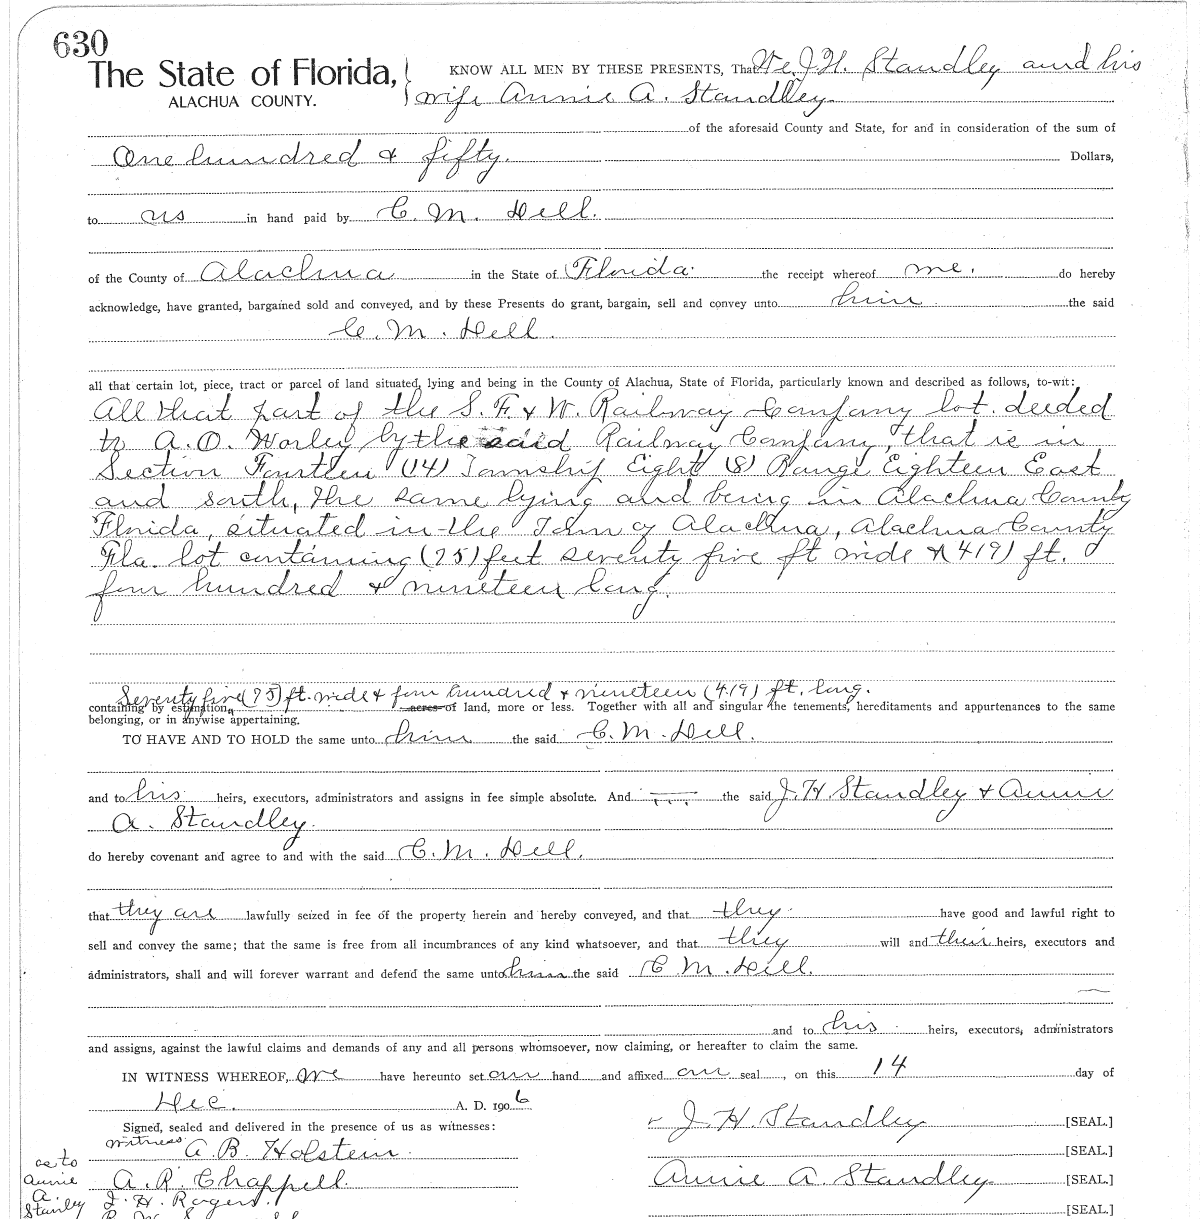 630
The State of Florida, } KNOW ALL MEN BY THESE PRESENTS, That We, J. H. Standley and his
ALACHUA COUNTY. wife Annie A. Standley
of the aforesaid County and State, for and in consideration of the sum of
One hundred & fifty. Dollars,
to us in hand paid by C. M. Dell.
of the County of Alachua in the State of Florida. the receipt whereof we. do hereby
acknowledge, have granted, bargained sold and conveyed, and by these Presents do grant, bargain, sell and convey unto him the said
C. M. Dell.
all that certain lot, piece, tract or parcel of land situated, lying and being in the County of Alachua, State of Florida, particularly known and described as follows, to-wit:
All that part of the S. F. & W. Railway Company lot deeded
to A. O. Worley by the said Railway Company, that is in
Section Fourteen (14) Township Eight (8) Range Eighteen East
and south, the same lying and being in Alachua County
Florida, situated in the Town of Alachua, Alachua County
Fla. lot containing (75) feet seventy five ft wide & (419) ft.
four hundred & nineteen long.
Seventy five (75) ft. wide & four hundred & nineteen (419) ft. long.
containing by estimation, acres of land, more or less. Together with all and singular the tenements, hereditaments and appurtenances to the same
belonging, or in anywise appertaining.
TO HAVE AND TO HOLD the same unto him the said C. M. Dell.
and to his heirs, executors, administrators and assigns in fee simple absolute. And the said J. H. Standley & Annie
A. Standley.
do hereby covenant and agree to and with the said C. M. Dell.
that they are lawfully seized in fee of the property herein and hereby conveyed, and that they have good and lawful right to
sell and convey the same; that the same is free from all incumbrances of any kind whatsoever, and that they will and their heirs, executors and
administrators, shall and will forever warrant and defend the same unto him the said C. M. Dell.
and to his heirs, executors, administrators
and assigns, against the lawful claims and demands of any and all persons whomsoever, now claiming, or hereafter to claim the same.
IN WITNESS WHEREOF, we have hereunto set our hand and affixed our seal, on this 14 day of
Dec. A. D. 1906
Signed, sealed and delivered in the presence of us as witnesses: J. H. Standley [SEAL.]
witness A. B. Holstein. [SEAL.]
as to Annie A. Stanley
A. R. Chappell. Annie A. Standley [SEAL.]
J. H. Rogers. [SEAL.]